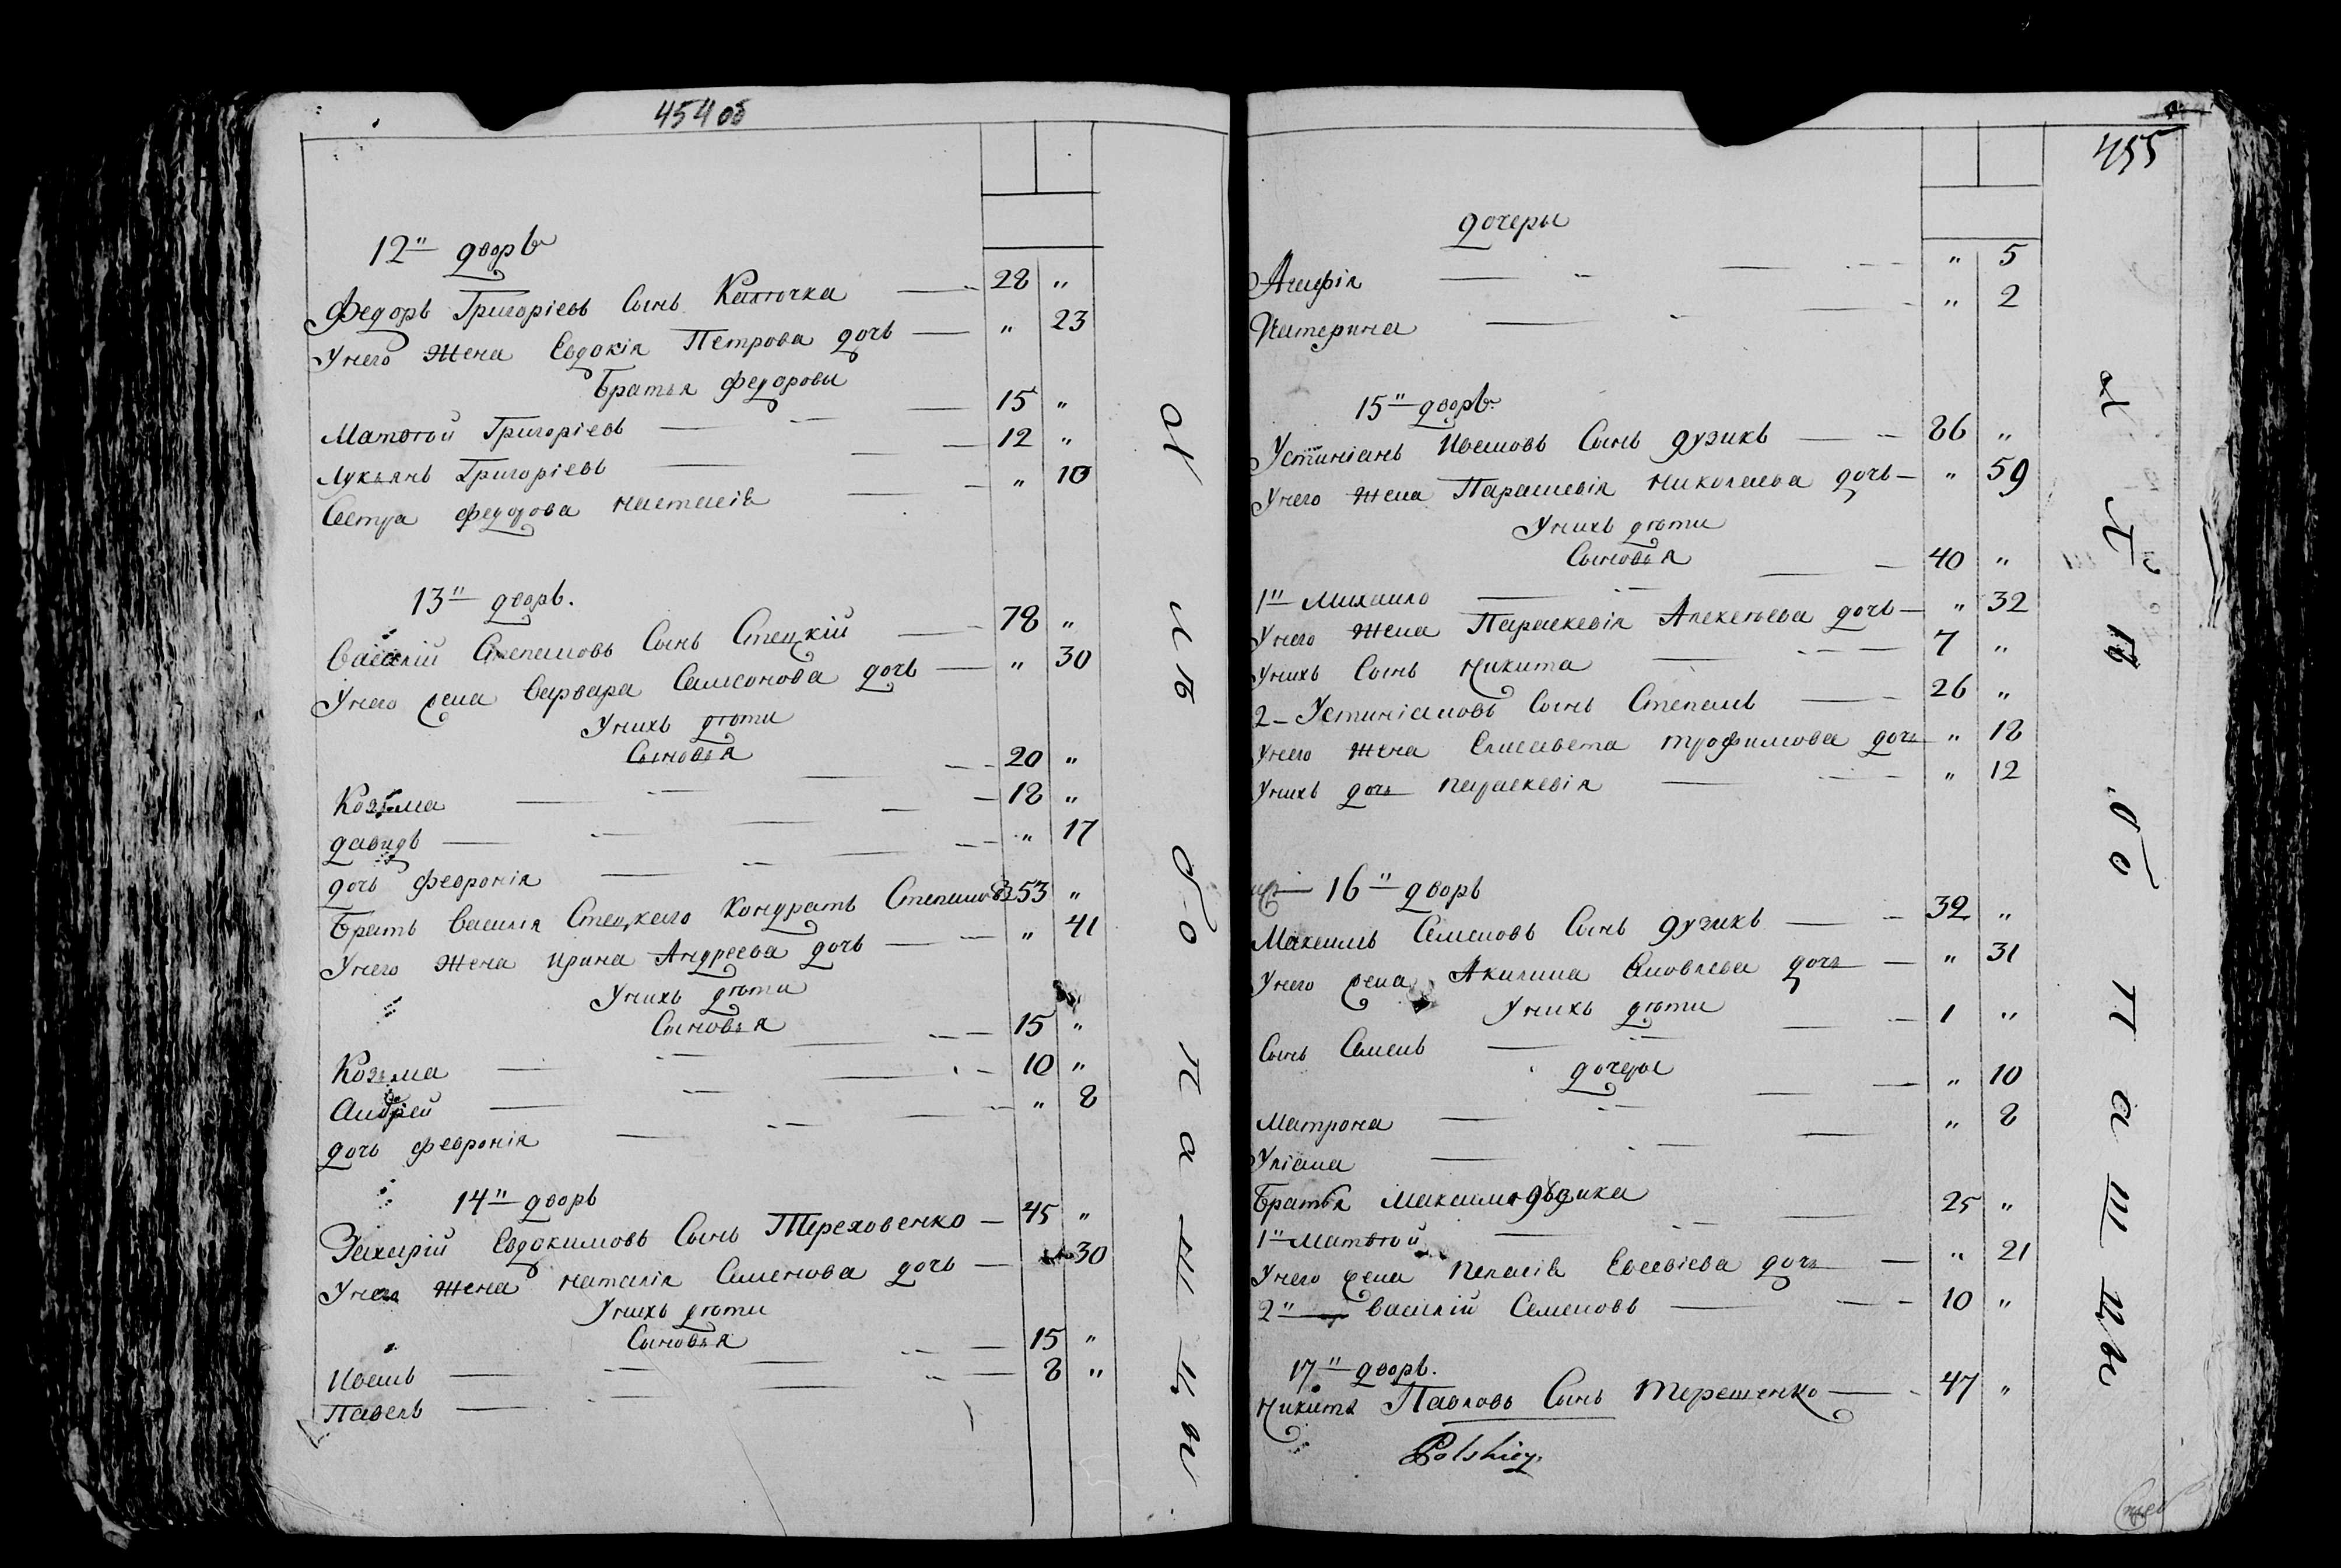 454 об
12" дворъ
Федоръ Григоріевъ Сынъ Калточка 28 "
Унего Жена Евдокія Петрова дочь " 23
Братья Федоровы
Матвѣй Григоріевъ 15 "
Лукьянъ Григоріевъ 12 "
Сестра Федорова Настасія " 10
13" дворъ.
Василій Степановъ Сынъ Стецкій 78 "
Унего Жена Варвара Самсонова дочь " 30
Унихъ дѣти
Сыновья
Козьма 20 "
Давидъ 18 "
дочь Февронія " 17
Братъ Василія Стецкаго Кондратъ Степановъ 53 "
Унего Жена Ирина Андреева дочь " 41
Унихъ дѣти
Сыновья
Козьма 15 "
Андрей 10 "
дочь Февронія " 8
14" дворъ
Захарій Евдокимовъ Сынъ Тереховенко 45 "
Унего Жена Наталія Семенова дочь 30
Унихъ дѣти
Сыновья
Иванъ 15 "
Павелъ 8 "
455
дочеры
Агафія " 5
Катерина " 2
15" дворъ.
Устиніанъ Ивановъ Сынъ дузикъ 86 "
Унего Жена Парасковія Николаева дочь " 59
Унихъ дѣти
Сыновья
1" Михайло 40 "
Унего Жена Параскевія Алексѣева дочь " 32
Унихъ Сынъ Никита 7 "
2 Устиніановъ Сынъ Степанъ 26 "
Унего Жена Елисавета Трофимова дочь " 18
Унихъ дочь Параскевія " 12
16" дворъ
Максимъ Семеновъ Сынъ дузикъ 32 "
Унего Жена Акилина Яковлева дочь " 31
Унихъ дѣти
Сынъ Семенъ 1 "
дочеры
Матрона " 10
Уліана " 8
Братья Максима дузика
1" Матвѣй 25 "
Унего Жена Пелагія Евсевіева дочь " 21
2" Василій Семеновъ 10 "
17" дворъ.
Никита Павловъ Сынъ Терещенко 47 "